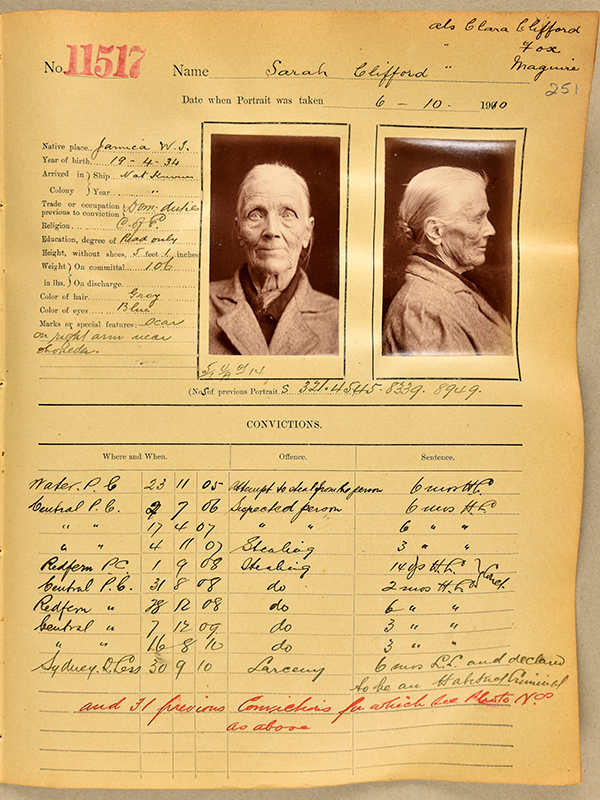 als Clara Clifford
" Fox
" Maguire
251
No. 11517 Name Sarah Clifford
Date when Portrait was taken 6 - 10 - 1910
Native place Jamica W. I.
Year of birth 19 - 4 - 34
Arrived in Colony } Ship Not Known
Year "
Trade or occupation previous to conviction } Dom. duties
Religion C. of E.
Education, degree of Read only
Height, without shoes, 5 feet 1 inches
Weight in lbs. } On committal 106
On discharge.
Color of hair Grey
Color of eyes Blue
Marks or special features: Scar
on right arm near
shoulder.
(Nos of previous Portrait S 321. 4545. 8339. 8949.
CONVICTIONS.
Where and When. Offence. Sentence.
Water. P. C 23 11 05 Attempt to steal from the person 6 mos H L
Central P. C. 2 7 06 Suspected person 6 mos H L
" " 17 4 07 " " 6 " "
" " 4 11 07 Stealing 3 " "
Redfern P.C 1 9 08 Stealing 14 dys H L
Central P. C. 31 8 08 do 2 mos H L
Redfern " 28 12 08 do 6 " "
Central " 7 12 09 do 3 " "
" " 16 8 10 do 3 " "
Sydney Q. Sess 30 9 10 Larceny 6 mos L. L. and declared
to be an Habitual Criminal
and 31 previous Convictions for which see Photo Nos
as above